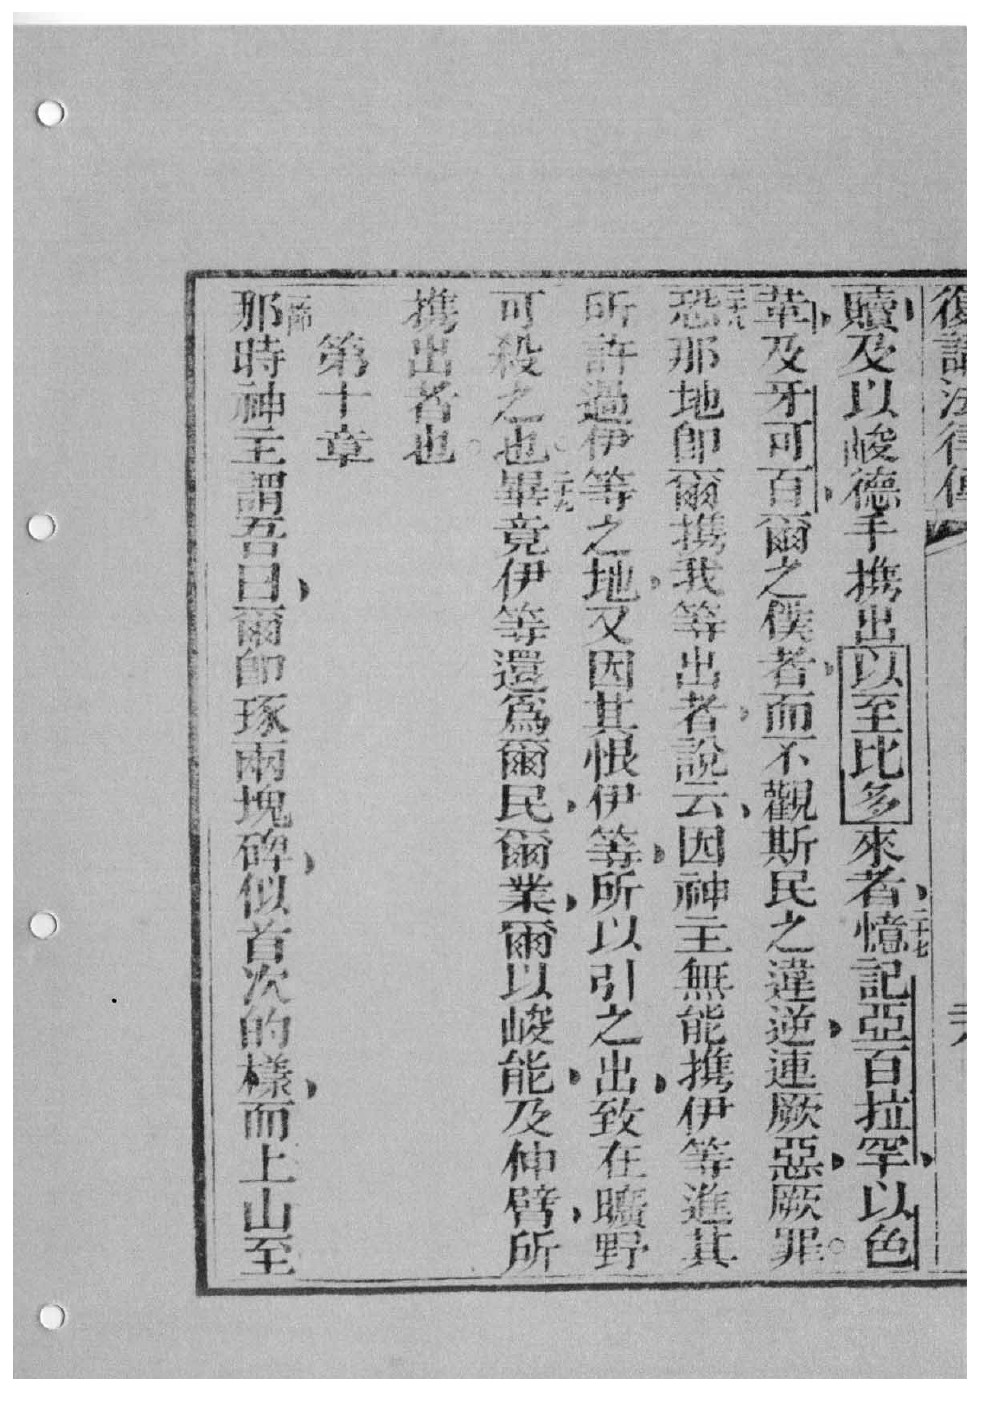 復講法律傳
贖及以峻德手携出以至比多來者二十七憶記亞百拉罕以色
革及牙可百爾之僕者而不觀斯民之違逆連厥惡厥罪○
二十八恐那地即爾携我等出者說云因神主無能携伊等進其
所許過伊等之地又因其恨伊等所以引之出致在曠野
可殺之也○二十九畢竟伊等還爲爾民爾業爾以峻能及伸臂所
携出者也○
第十章
一節那時神主謂吾曰爾即琢兩塊碑似首次的樣而上山至